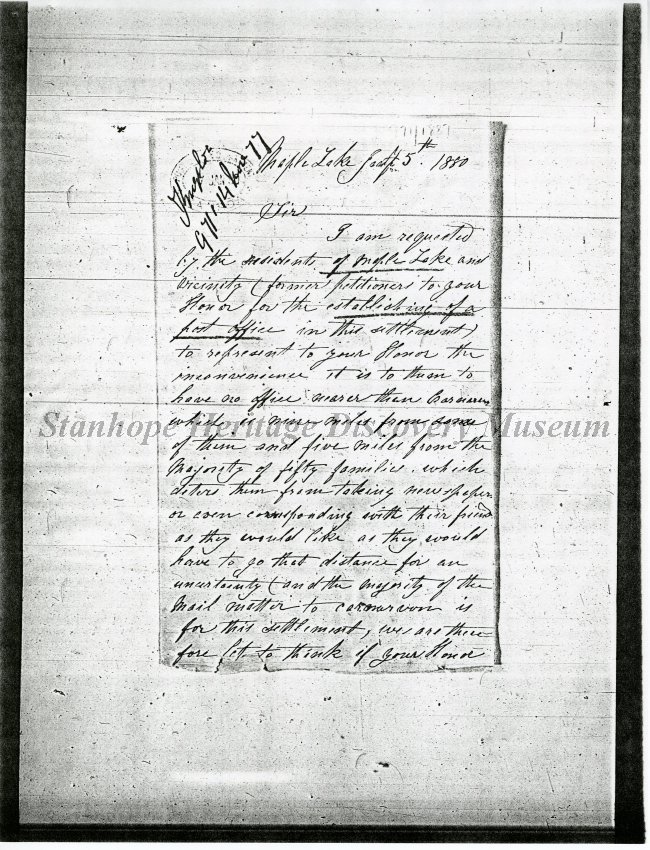 Maple Lake Sept 5th 1880
Sir
I am requested
by the residents of Maple Lake and
vicinity (former petitioners to your
Honor for the establishing of a
post office in this settlement)
to represent to your Honor the
inconvenience it is to them to
have no office nearer than Carnarvon
which is nine miles from some
of them and five miles from the
Majority of fifty families. which
deters them from taking newspapers
or even corresponding with their friends
as they would like as they would
have to go that distance for an
uncertainty (and the majority of the
Mail matter to carnarvon is
for this settlement, we are there
fore to think if your Honor
Stanhope Heritage Discovery Museum